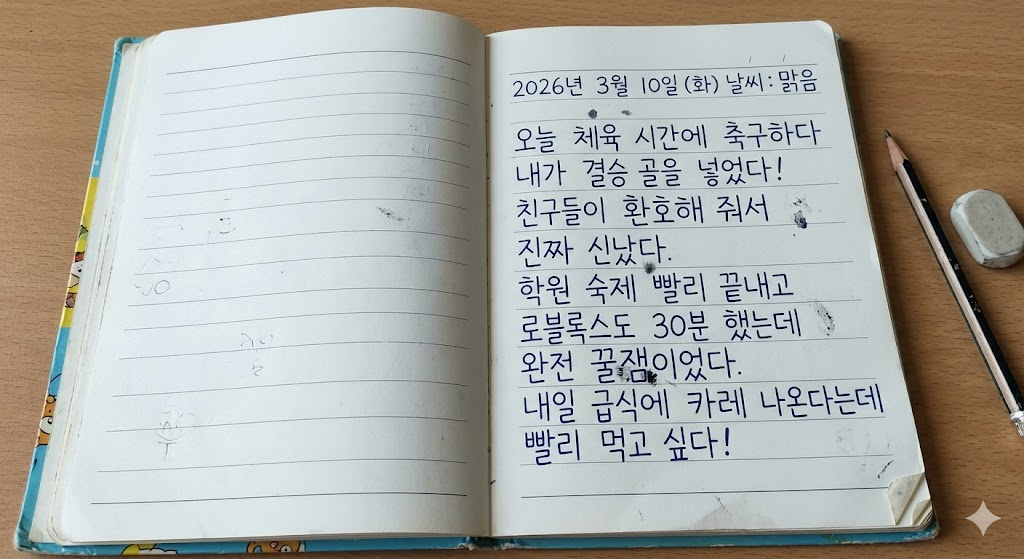 2026년 3월 10일 (화) 날씨: 맑음
오늘 체육 시간에 축구하다
내가 결승 골을 넣었다!
친구들이 환호해 줘서
진짜 신났다.
학원 숙제 빨리 끝내고
로블록스도 30분 했는데
완전 꿀잼이었다.
내일 급식에 카레 나온다는데
빨리 먹고 싶다!